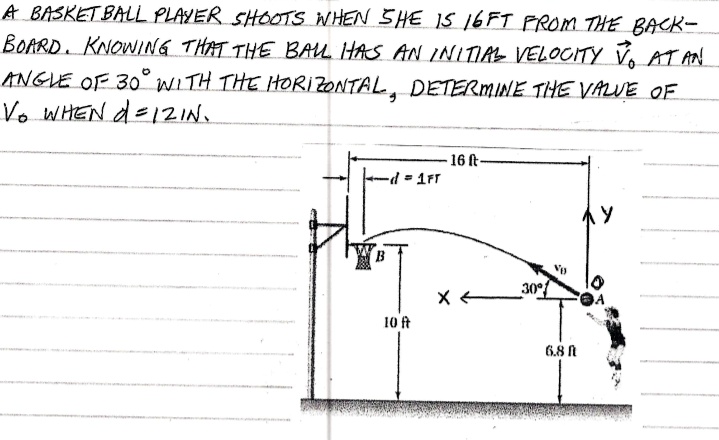 A BASKETBALL PLAYER SHOOTS WHEN SHE IS 16FT FROM THE BACK-
BOARD. KNOWING THAT THE BALL HAS AN INITIAL VELOCITY V⃗₀ AT AN
ANGLE OF 30° WITH THE HORIZONTAL, DETERMINE THE VALUE OF
V₀ WHEN d=12IN.
16 ft
d = 1FT
Y
B
v₀
30°
O
X
A
10 ft
6.8 ft